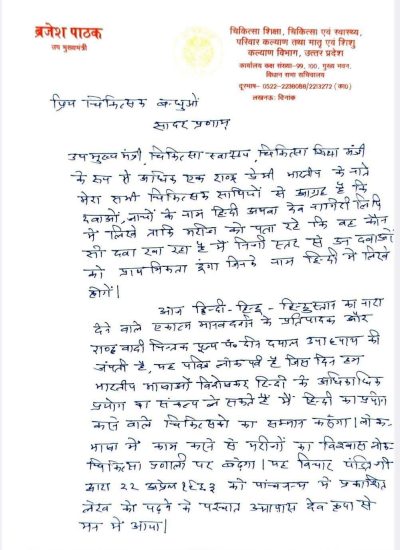 ब्रजेश पाठक
उप मुख्यमंत्री
चिकित्सा शिक्षा, चिकित्सा एवं स्वास्थ्य,
परिवार कल्याण तथा मातृ एवं शिशु
कल्याण विभाग, उत्तर प्रदेश
कार्यालय कक्ष संख्या-99, 100, मुख्य भवन,
विधान सभा सचिवालय
दूरभाष- 0522-2238088/2213272 (का0)
लखनऊ: दिनांक
प्रिय चिकित्सक बन्धुओं
सादर प्रणाम,
उप मुख्य मंत्री, चिकित्सा स्वास्थ्य, चिकित्सा शिक्षा मंत्री
के रूप से अधिक एक राष्ट्र प्रेमी भारतीय के नाते
मेरा सभी चिकित्सक साथियों से आग्रह है कि
दवाओं, जाचों के नाम हिन्दी अथवा देव नागिरी लिपि
में लिखे ताकि मरीज को पता रहे कि वह कौन
सी दवा खा रहा है मैं निजी स्तर से उन दवाओं
को प्राथमिकता दूंगा जिनके नाम हिन्दी में लिखे
होगें।
आज हिन्दी-हिन्दू-हिन्दुस्तान का नारा
देने वाले एकात्म मानवदर्शन के प्रतिपादक और
राष्ट्रवादी चिन्तक पूज्य पं० दीन दयाल उपाध्याय की
जयंती है, यह पवित्र लोक पर्व है जिस दिन हम
भारतीय भाषाओं विशेषकर हिन्दी के अधिकाधिक
प्रयोग का संकल्प ले सकते हैं मैं हिन्दी का प्रयोग
करने वाले चिकित्सकों का सम्मान करूंगा। लोक-
भाषा में काम करने से मरीजों का विश्वास लोक-
चिकित्सा प्रणाली पर बढ़ेगा। यह विचार पंडित जी
द्वारा २२ अप्रैल को पांचजन्य में प्रकाशित
लेख को पढ़ने के पश्चात अनायास देव कृपा से
मन में आया।